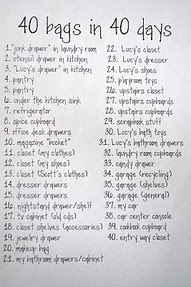 40 bags in 40 days
1. "junk drawer" in laundry room
2. utensil drawer in kitchen
3. "Lucy's drawer" in kitchen
4. pantry
5. pantry
6. under the kitchen sink
7. refrigerator
8. spice cupboard
9. office desk drawers
10. magazine "bucket"
11. closet (my clothes)
12. closet (my shoes)
13. closet (Scott's clothes)
14. dresser drawers
15. dresser drawers
16. nightstand drawer/shelf
17. tv cabinet (old cds)
18. closet shelves (accessories)
19. jewelry drawer
20. makeup bag
21. my bathroom drawers/cabinet
22. Lucy's closet
23. Lucy's dresser
24. Lucy's shoes
25. playroom toys
26. upstairs closet
27. upstairs cupboards
28. upstairs cupboards
29. scrapbook stuff
30. Lucy's bath toys
31. Lucy's bathroom drawers
32. laundry room cupboards
33. candy drawer
34. garage (recycling)
35. garage (shelves)
36. garage (general)
37. my car
38. car center console
39. cookbook cupboard
40. entry way closet